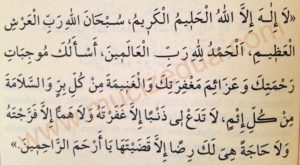 «لَا إِلٰهَ إِلَّا اللهُ الْحَلِيمُ الْكَرِيمُ، سُبْحَانَ اللهِ رَبِّ الْعَرْشِ
الْعَظِيمِ، الْحَمْدُ لِلهِ رَبِّ الْعَالَمِينَ، أَسْأَلُكَ مُوجِبَاتِ
رَحْمَتِكَ وَعَزَائِمَ مَغْفِرَتِكَ وَالْغَنِيمَةَ مِنْ كُلِّ بِرٍّ وَالسَّلَامَةَ
مِنْ كُلِّ إِثْمٍ، لَا تَدَعْ لِي ذَنْبًا إِلَّا غَفَرْتَهُ وَلَا هَمًّا إِلَّا فَرَّجْتَهُ
وَلَا حَاجَةً هِيَ لَكَ رِضًا إِلَّا قَضَيْتَهَا يَا أَرْحَمَ الرَّاحِمِينَ.»